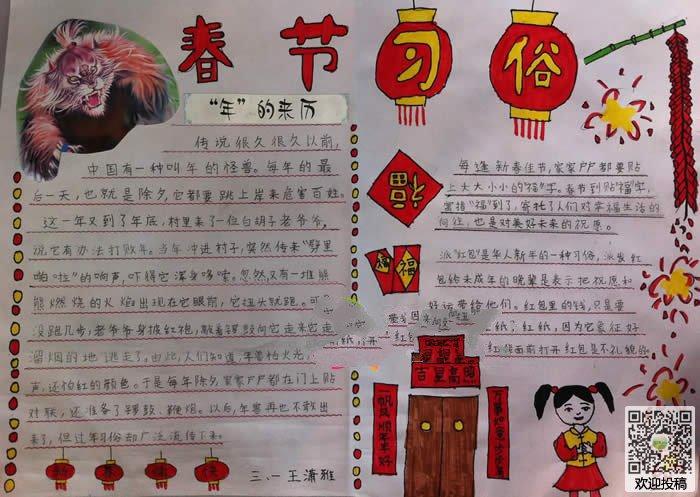 春节习俗
“年”的来历
传说很久很久以前，
中国有一种叫年的怪兽。每年的最
后一天，也就是除夕，它都要跳上岸来危害百姓。
这一年又到了年底，村里来了一位白胡子老爷爷，
说它有办法打败年。当年冲进村子，突然传来“劈里
啪啦”的响声，吓得它浑身哆嗦。忽然，又有一堆熊
熊燃烧的火焰出现在它眼前，它扭头就跑。可
没跑几步，老爷爷身披红袍，敲着锣鼓向它走来，它走
溜烟的地逃走了。由此，人们知道，年害怕火光，
声，还怕红的颜色。于是每年除夕，家家户户都在门上贴
对联，还准备了锣鼓、鞭炮。以后，年兽再也不敢出
来了，但过年习俗却广泛流传下来。
新春快
三、一 王潇雅
福
每逢新春佳节，家家户户都要贴
上大大小小的“福”字。春节到贴福字，
“福”到了，寄托了人们对幸福生活的
向往，也是对美好未来的祝愿。
福
福
派“红包”是华人新年的一种习俗，派发红
包给未成年的晚辈是表示把祝愿和
好运带给他们。红包里的钱，只是要
纸？红纸，因为它象征好
打开 红包
领面前打开红包是不礼貌的
吉星高照
一帆风顺年年好
万事如意步步高
欢迎投稿